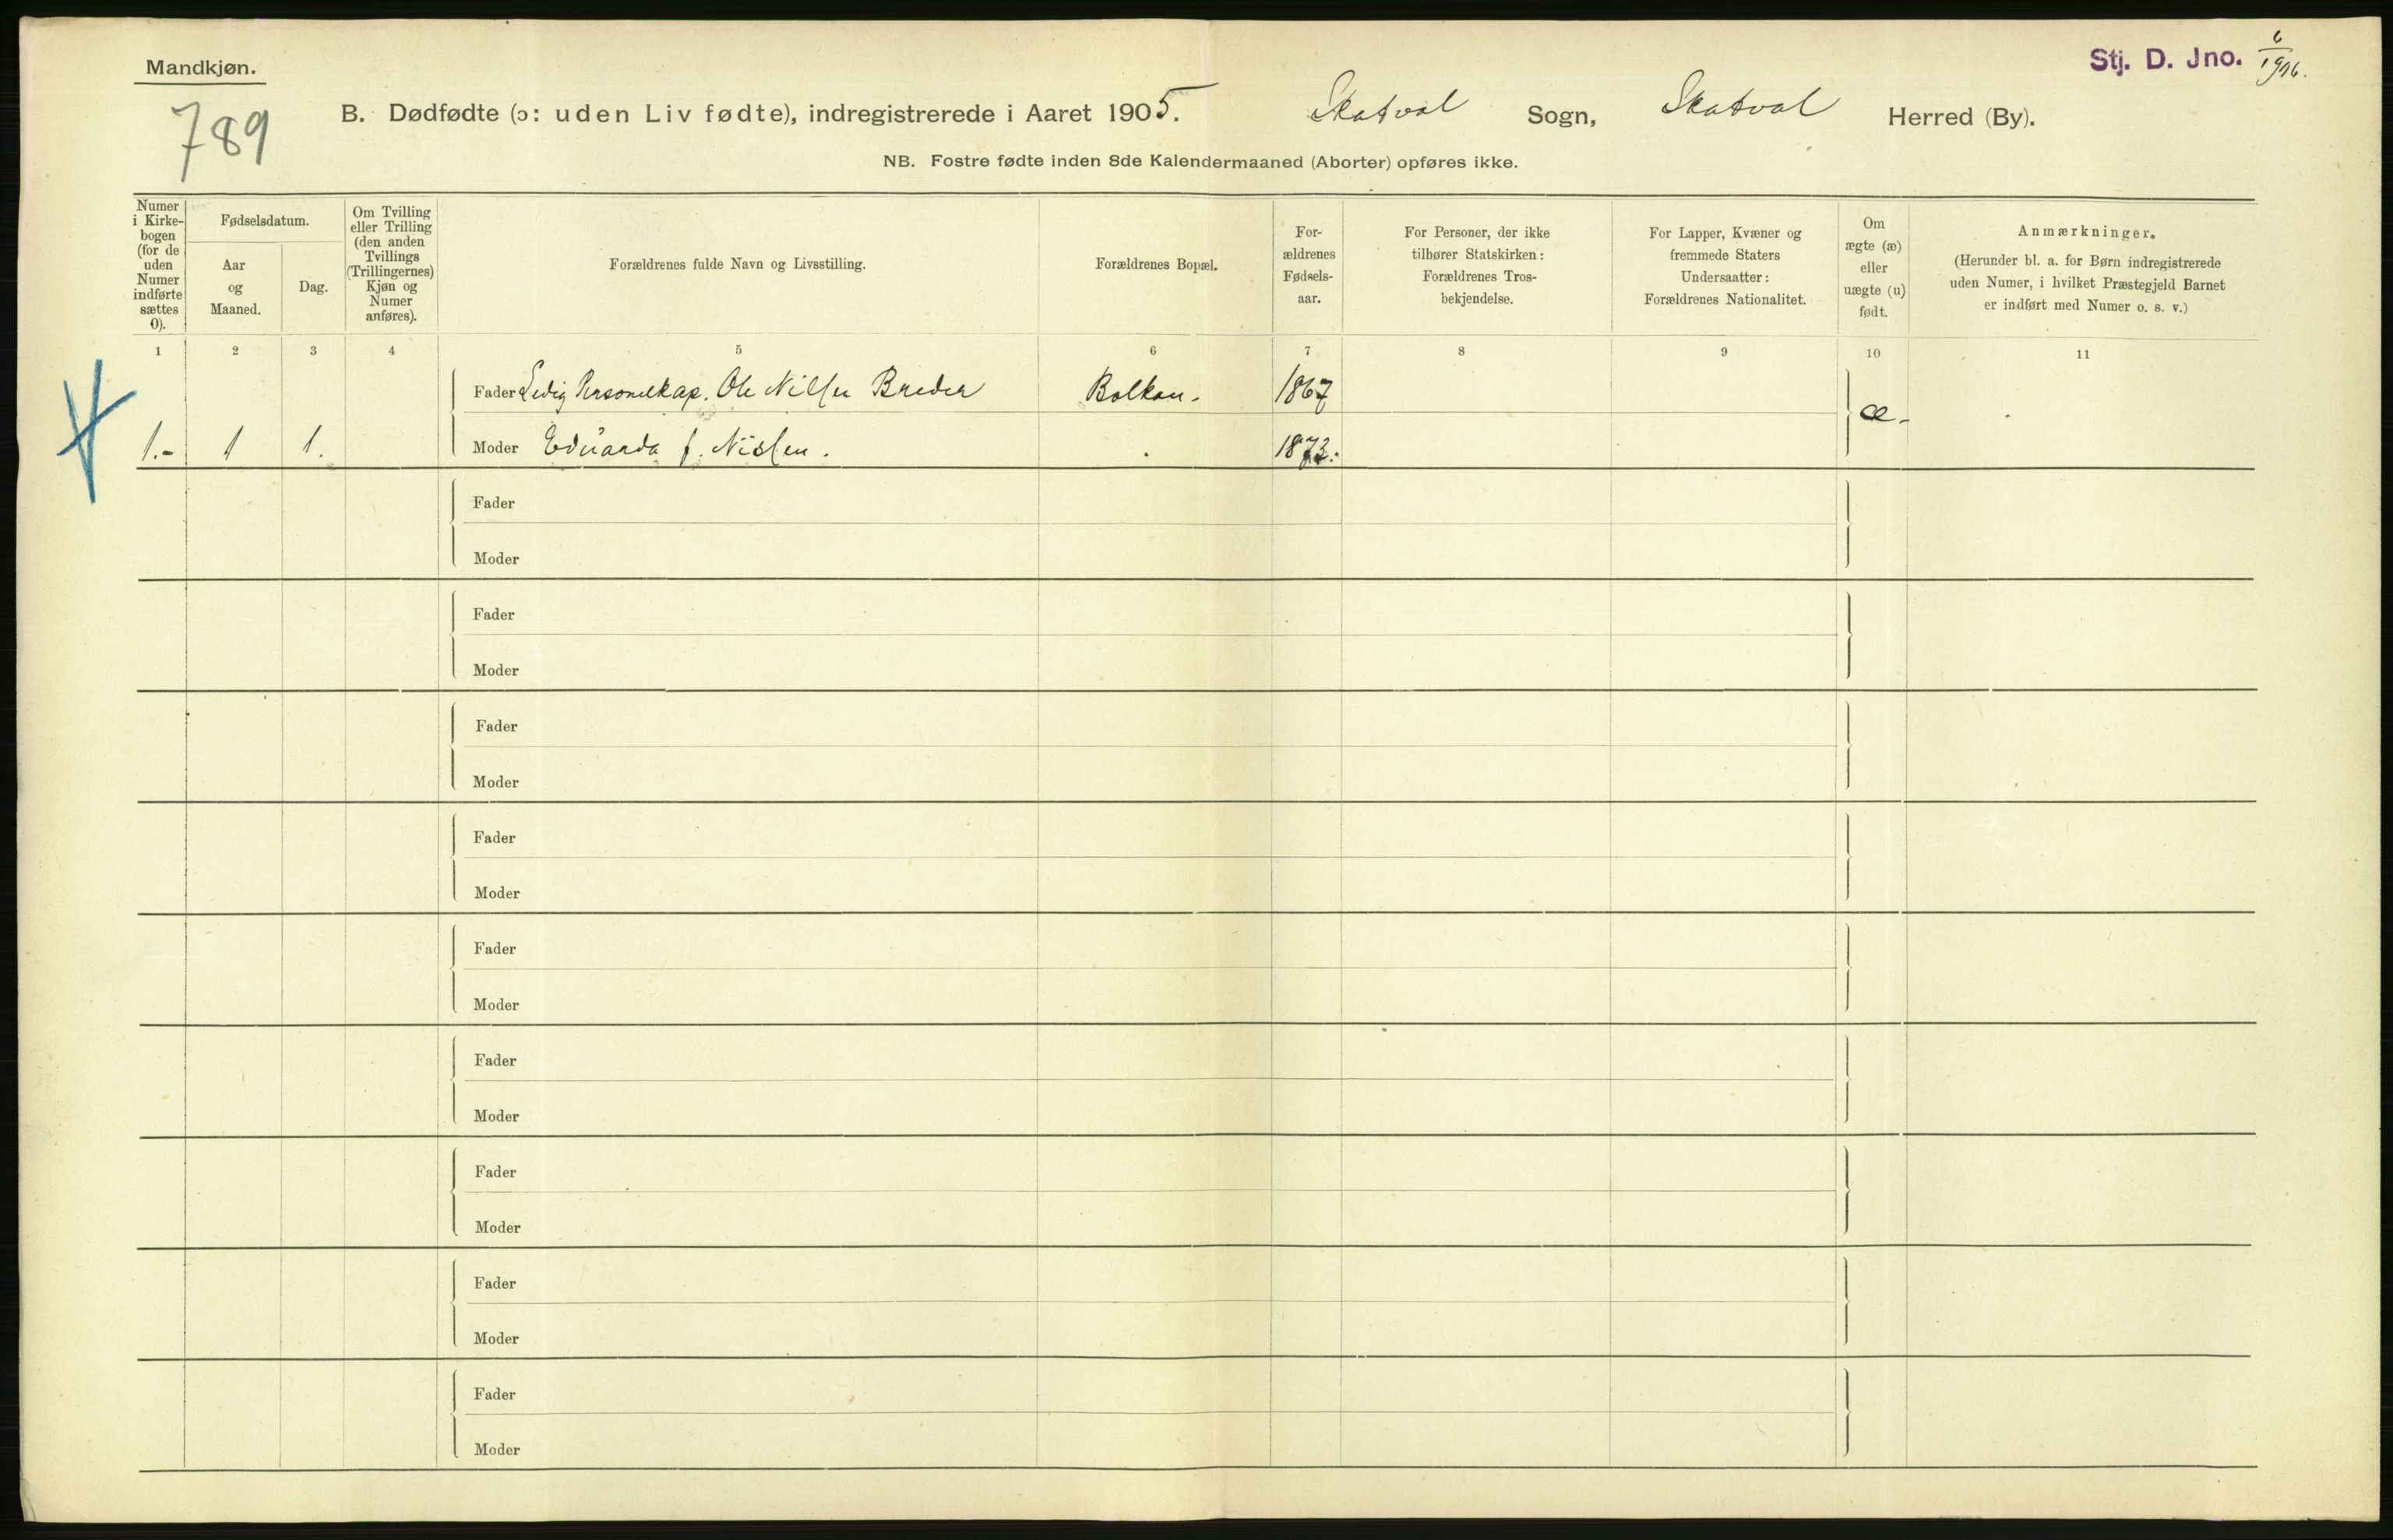 Mandkjøn.
Stj. D. Jno. 6/1906.
789
B. Dødfødte (ɔ: uden Liv fødte), indregistrerede i Aaret 1905. Skatval Sogn, Skatval Herred (By).
NB. Fostre fødte inden 8de Kalendermaaned (Aborter) opføres ikke.
Numer
i Kirke-
bogen
(for de
uden
Numer
indførte
sættes
0).
Fødselsdatum.
Aar
og
Maaned.
Dag.
Om Tvilling
eller Trilling
(den anden
Tvillings
(Trillingernes)
Kjøn og
Numer
anføres).
Forældrenes fulde Navn og Livsstilling.
Forældrenes Bopæl.
For-
ældrenes
Fødsels-
aar.
For Personer, der ikke
tilhører Statskirken:
Forældrenes Tros-
bekjendelse.
For Lapper, Kvæner og
fremmede Staters
Undersaatter:
Forældrenes Nationalitet.
Om
ægte (æ)
eller
uægte (u)
født.
Anmærkninger.
(Herunder bl. a. for Børn indregistrerede
uden Numer, i hvilket Præstegjeld Barnet
er indført med Numer o. s. v.)
1 2 3 4 5 6 7 8 9 10 11
Fader Ole Nilsen Breder Bolkan. 1867
æ.
1. 1 1. Moder Eduarda f. Nislen. 1873.
Fader
Moder
Fader
Moder
Fader
Moder
Fader
Moder
Fader
Moder
Fader
Moder
Fader
Moder
Fader
Moder
Fader
Moder